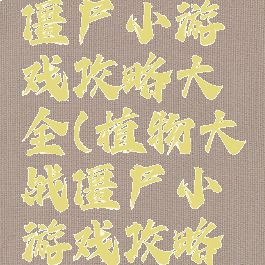 僵尸小游
戏攻略大
全(植物大
战僵尸小
游戏攻略